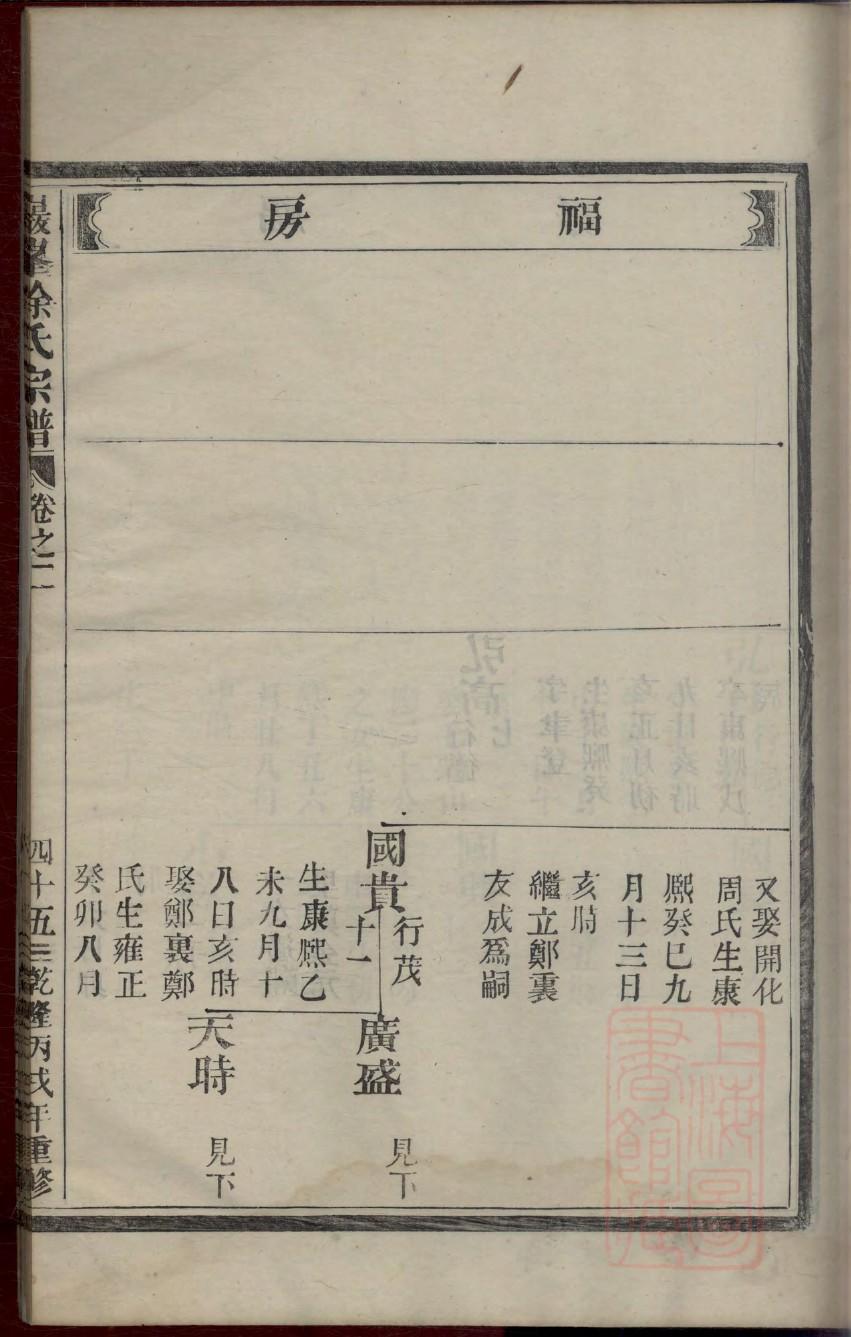 福房
又娶開化
周氏生康
熙癸巳九
月十三日
亥時
繼立鄭裏
友成為嗣
國貴
行茂
十一
生康熙乙
未九月十
八日亥時
娶鄭裏鄭
氏生雍正
癸卯八月
廣盛
見下
天時
見下
徐氏宗譜
卷之二
四十五
乾隆丙戌年重修
上海圖書館藏